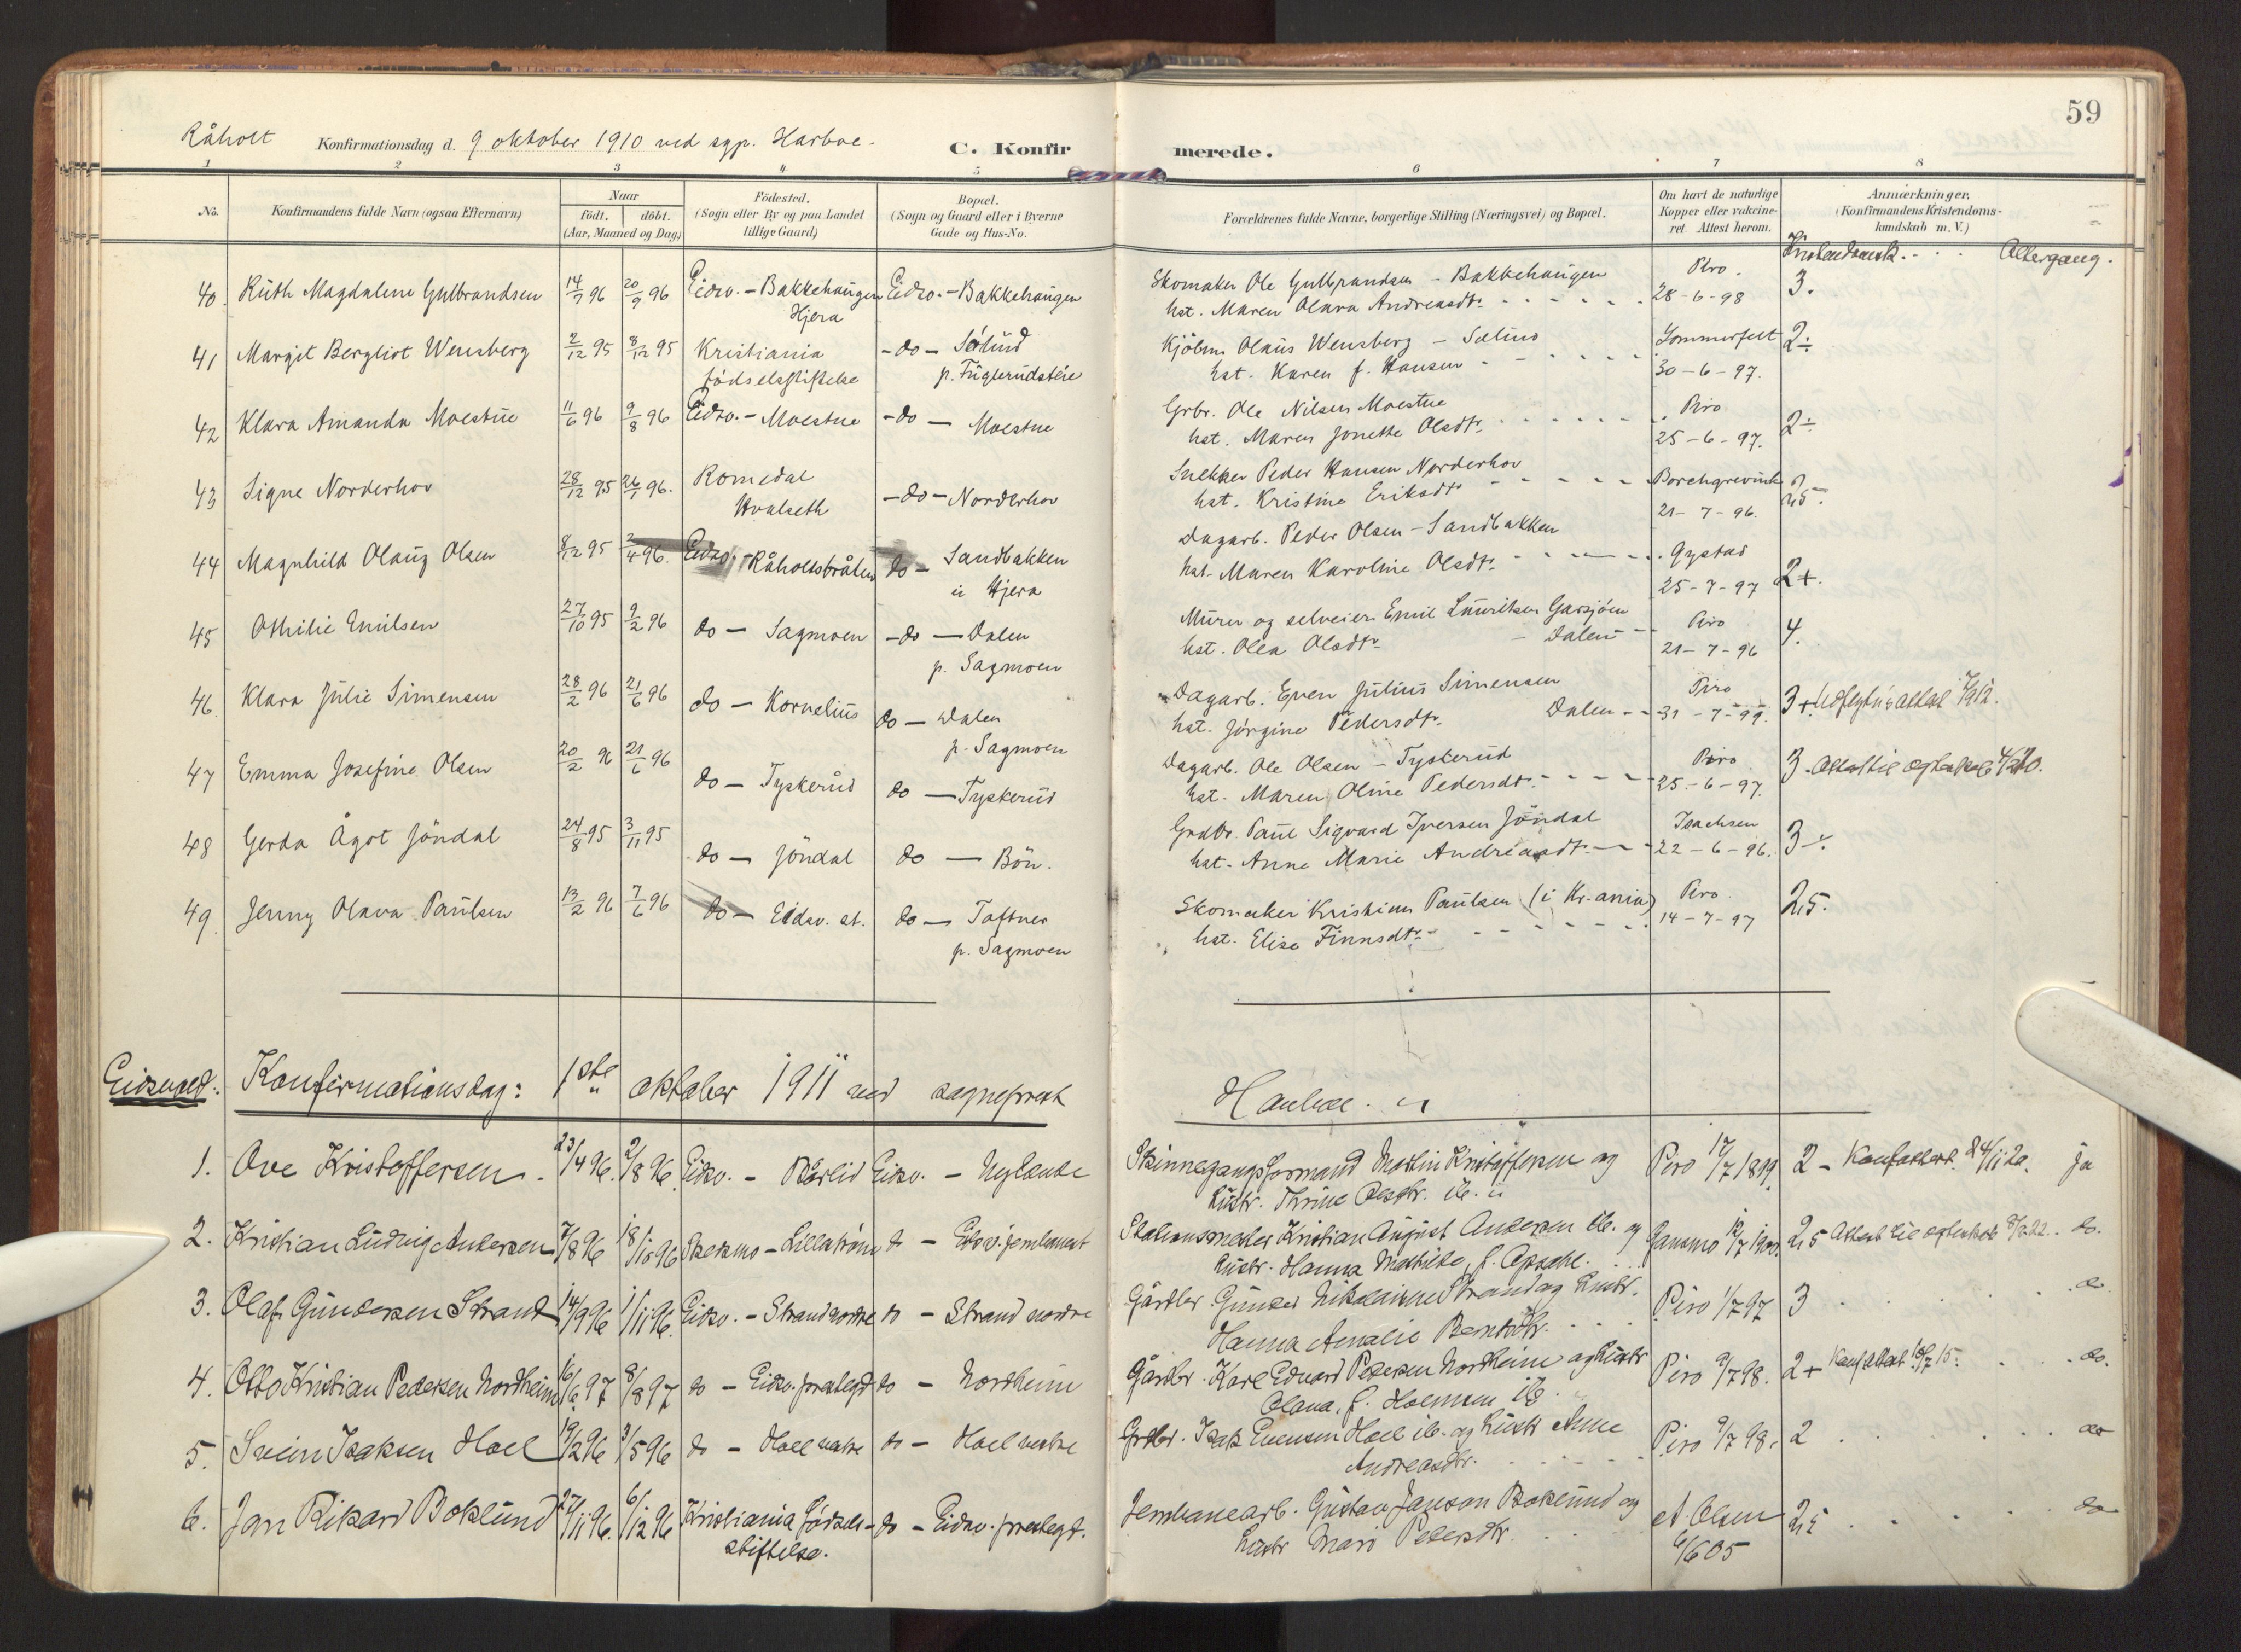 59
Råholt Konfirmationsdag d. 9 oktober 1910 ved sgp. Harboe.
C. Konfirmerede.
1 2 3 4 5 6 7 8
No. Konfirmandens fulde Navn (ogsaa Efternavn) Naar født. døbt. (Aar, Maaned og Dag.) Fødested. (Sogn eller By og paa Landet tillige Gaard) Bopæl. (Sogn og Gaard eller i Byerne Gade og Hus-No. Forældrenes fulde Navne, borgerlige Stilling (Næringsvei) og Bopæl. Om havt de naturlige Kopper eller vakcineret Attest herom. Anmærkninger. (Konfirmandens Kristendomskundskab m. V.)
Altergang.
40. Ruth Magdalene Gulbrandsen 14/7 96 20/9 96 Eidsv. - Bakkehaugen Eidsv. - Bakkehaugen Skomaker Ole Gulbrandsen - Bakkehaugen Piro. 3.
Hjera hst. Maren Olava Andreasdtr. 28-6-98
41 Margit Bergliot Wensberg 2/12 95 8/12 95 Kristiania -do- Sølund Olaus Wensberg - Sommerfelt 2÷
fødselsstiftelse p. Fuglerudsteie hst. Karen f. Hansen 30-6-97.
42 Klara Amanda Moestue 11/6 96 9/8 96 Eidsv. - Moestue -do- Moestue Grbr. Ole Nilsen Moestue Piro 2÷
hst. Maren Jonette Olsdtr. 25-6-97.
43 Signe Norderhov 28/12 95 26/1 96. Romedal -do- Norderhov Snekker Peder Hansen Norderhov Borchgrevink 2,5.
Hvalseth hst. Kristine Eriksdtr 21-7-96.
44 Magnhild Olaug Olsen 8/12 95 2/4 96. Eidsv. - Råholtsbråten do - Sandbakken Dagarb. Peder Olsen - Sandbakken Gystad 2+.
i Hjera hst. Maren Karoline Olsdtr. 25-7-97
45 Othilie Emilsen 27/10 95 9/2 96 do - Sagmoen -do - Dalen Murer og selveier Emil Lauritsen Garsjøen Piro 4.
p. Sagmoen hst. Olea Olsdtr. - Dalen - 21-7-96
46. Klara Julie Simensen 28/2 96 21/6 96 do - Kornelius do - Dalen Dagarb. Even Julius Simensen Piro 3+.
p. Sagmoen hst. Jørgine Pedersdtr. Dalen - 31-7-99.
47 Emma Josefine Olsen 20/2 96 21/6 96 do - Tyskerud do - Tyskerud Dagarb. Ole Olsen - Tyskerud Piro 3.
hst. Maren Oline Pedersdtr. 25-6-97.
48 Gerda Ågot Jöndal 24/8 95 3/11 95 do - Jöndal do - Bön. Grdbr. Paul Sigvard Iversen Jöndal Isachsen 3÷
hst. Anne Marie Andreasdtr. 22-6-96.
49. Jenny Olava Paulsen 13/2 96 7/6 96 do - Eidsv. st. do - Toftner Skomaker Kristian Paulsen (i Kr.ania) Piro. 2,5.
p. Sagmoen hst. Elise Finnsdtr. 14-7-97
Eidsvold: Konfirmationsdag: 1ste oktober 1911 ved sogneprest Harboe.
1. Ove Kristoffersen. 23/4 96. 2/8 96. Eidsv. - Bårlid Eidsv. - Nylende Skinnegangsformand Martin Kristoffersen og Piro 17/7 1899. 2 - Konfattest. 24/11 20. ja
hustr. Thrine Olesdtr. ib.
2. Kristian Ludvig Andersen 7/8 96 18/10 96 Skedsmo - Lillestrøm do - Eidsv. jernverk Stationsmester Kristian August Andersen ib. og 12/7 1900. 2,5 do.
hustr. Hanna Mathilde f.
3. Olaf Gundersen Strand 14/9 96 1/11 96. Eidsv. - Strand nordre do - Strand nordre Gårdbr. Gunder Nikolaisen Strand og hustr. Piro 1/7 97 3 do.
Hanna Amalie Berntsdtr.
4. Otto Kristian Pedersen Nordheim 16/6 97 8/8 97 do - Eidsv. prestegd do - Nordheim Gårdbr. Karl Edvard Pedersen Nordheim og hustr Piro 9/7 98. 2+ Konfattest 10/7 15. do.
Olava f. Holmsen ib.
5. Svein Isaksen Hoel 19/2 96 3/5 96 do - Hoel vestre do - Hoel vestre Grdbr. Isak Evensen Hoel ib. og hustr Anne Piro 9/7 98. 2 do
Andreasdtr.
6. Jan Rikard Boklund 27/11 96. 6/12 96 Kristiania fødsels- do - Eidsv. prestegd. Jernbanearb. Gustav Janson Boklund og A. Olsen 2,5 do
stiftelse. hustr Mari Pedersdtr. 6/6 05